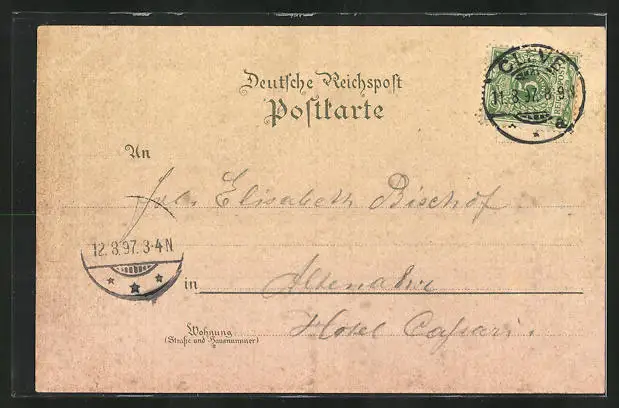 CLEVE
11.8.97. 8-9N
a
Deutsche Reichspost
Postkarte
An
Frl. Elisabeth Bischof
12.8.97. 3-4N
in Altenahr
Hotel Caspari.
Wohnung
(Straße und Hausnummer)